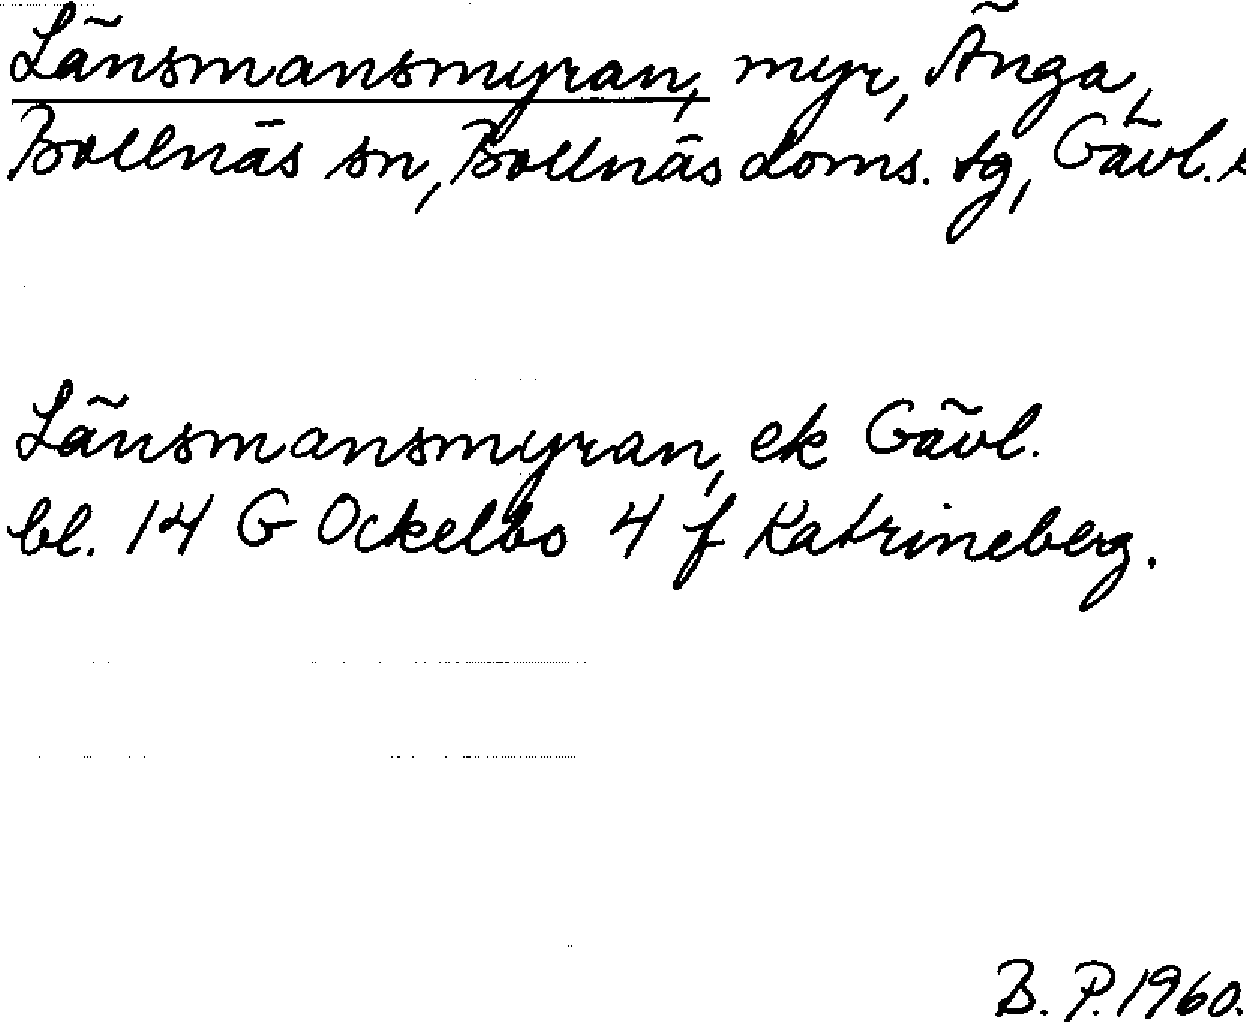 Länsmansmyran, myr, Änga,
Bollnäs sn, Bollnäs doms. tg, Gävl.
Länsmansmyran, ek Gävl.
bl. 14 G Ockelbo 4 f Katrineberg.
B. P. 1960.